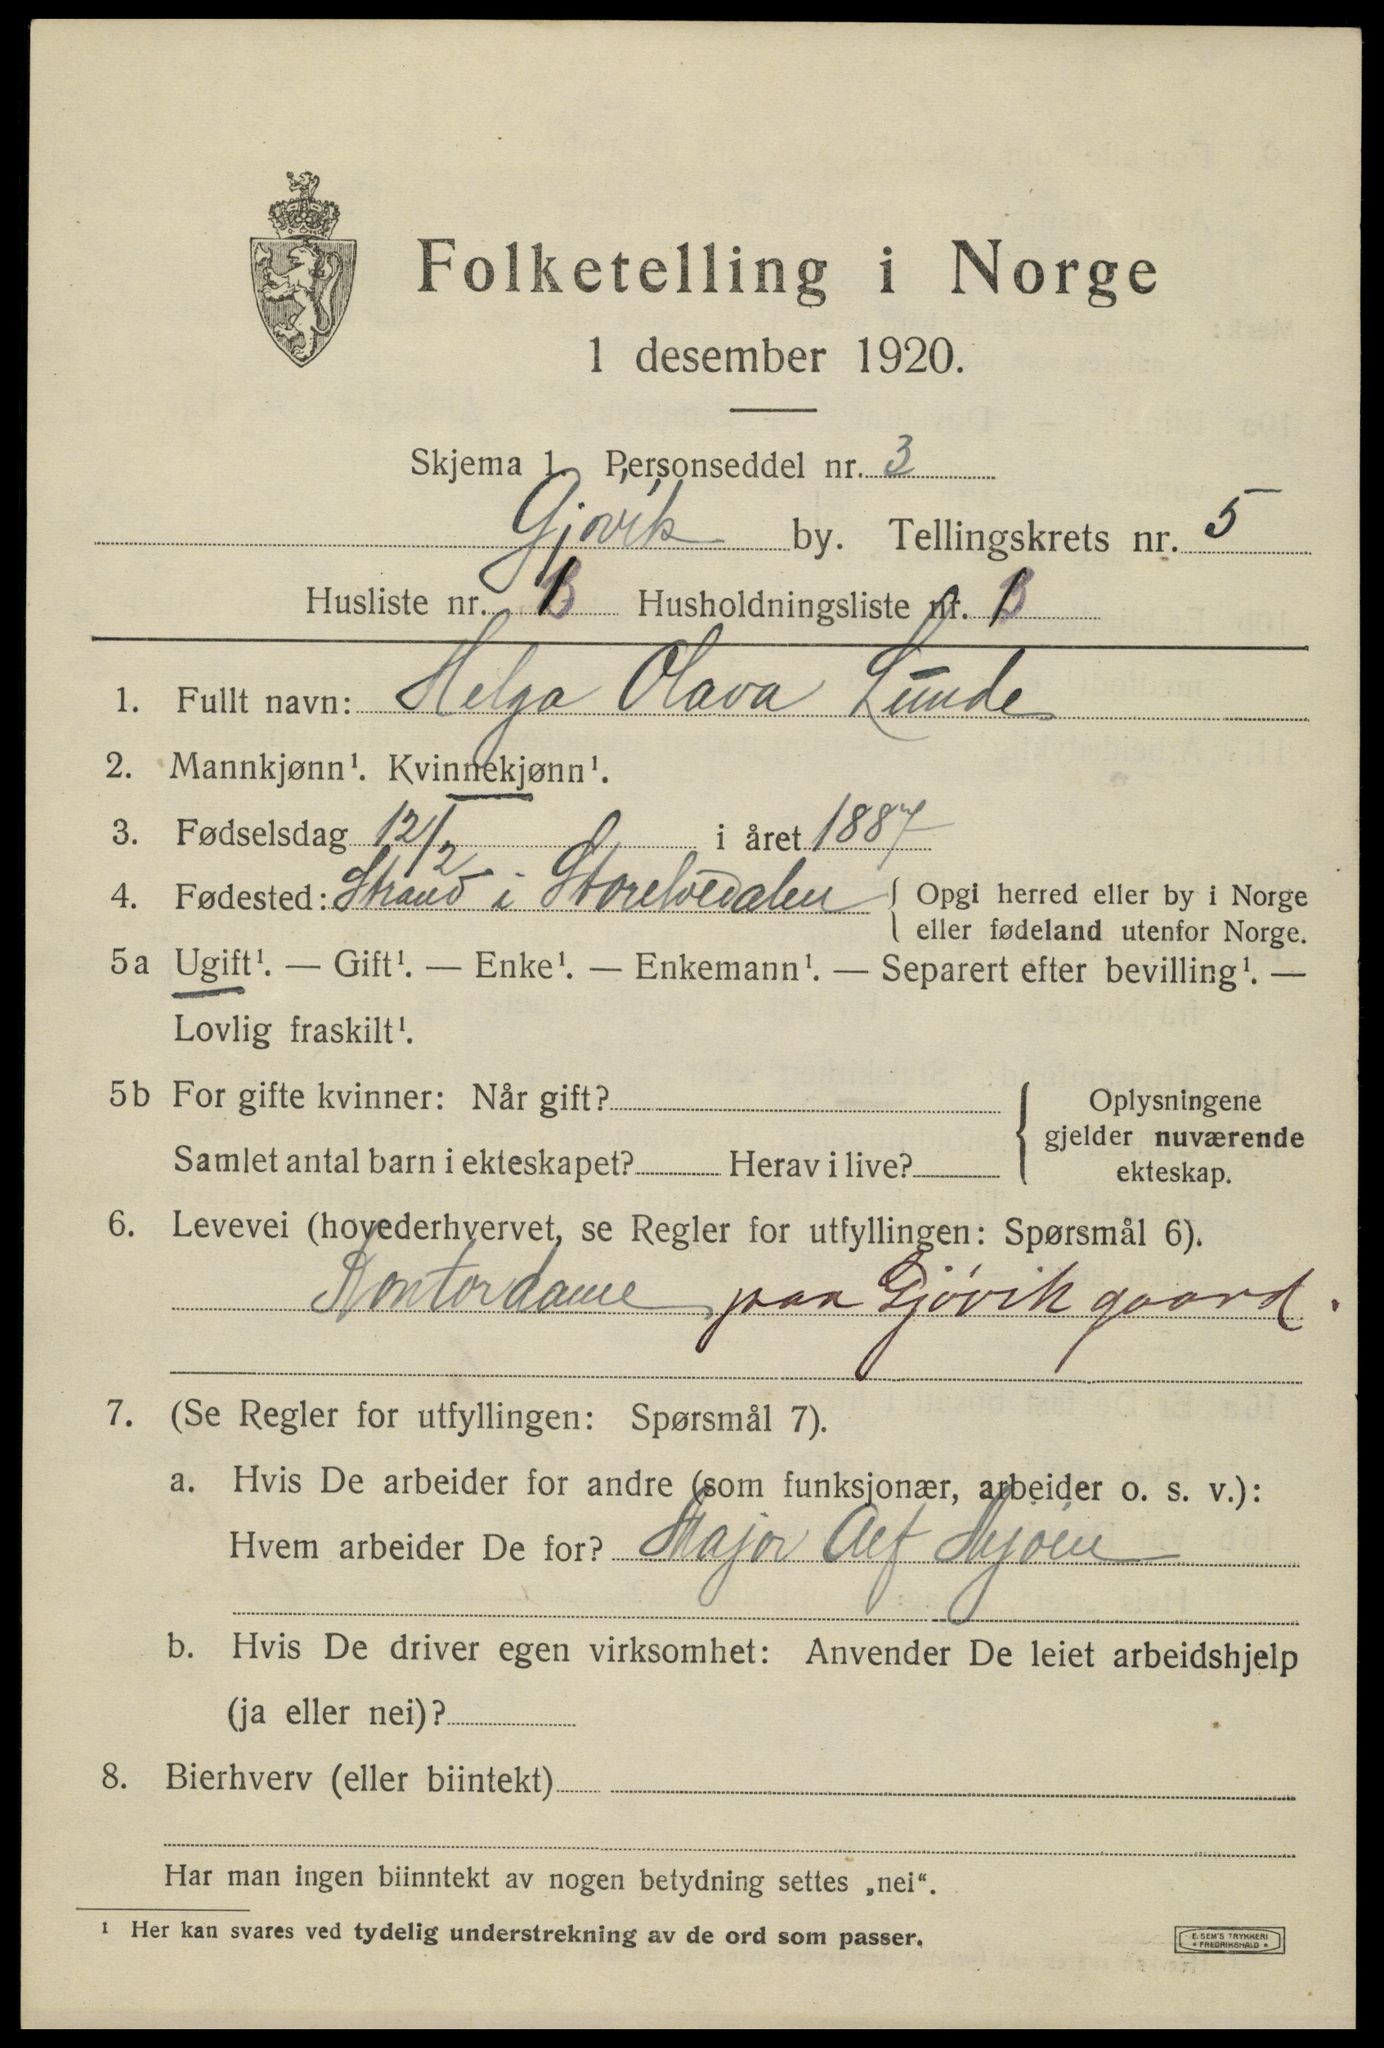 Folketelling i Norge
1 desember 1920.
Skjema 1. Personseddel nr. 3
Gjøvik by. Tellingskrets nr. 5
Husliste nr. Husholdningsliste nr.
1. Fullt navn: Helga Olava Lunde
2. Mannkjønn¹. Kvinnekjønn¹.
3. Fødselsdag 12/2 i året 1887
4. Fødested: Strand i Storelvedalen { Opgi herred eller by i Norge
eller fødeland utenfor Norge.
5a Ugift¹. — Gift¹. — Enke¹. — Enkemann¹. — Separert efter bevilling¹. —
Lovlig fraskilt¹.
5b For gifte kvinner: Når gift?
Samlet antal barn i ekteskapet? Herav i live?
Oplysningene
gjelder nuværende
ekteskap.
6. Levevei (hovederhvervet, se Regler for utfyllingen: Spørsmål 6).
Kontordame paa Gjøvik gaard.
7. (Se Regler for utfyllingen: Spørsmål 7).
a. Hvis De arbeider for andre (som funksjonær, arbeider o. s. v.):
Hvem arbeider De for? Major Alf Mjöen
b. Hvis De driver egen virksomhet: Anvender De leiet arbeidshjelp
(ja eller nei)?
8. Bierhverv (eller biintekt)
Har man ingen biinntekt av nogen betydning settes „nei“.
¹ Her kan svares ved tydelig understrekning av de ord som passer.
E. SEM'S TRYKKERI
* FREDRIKSHALD *